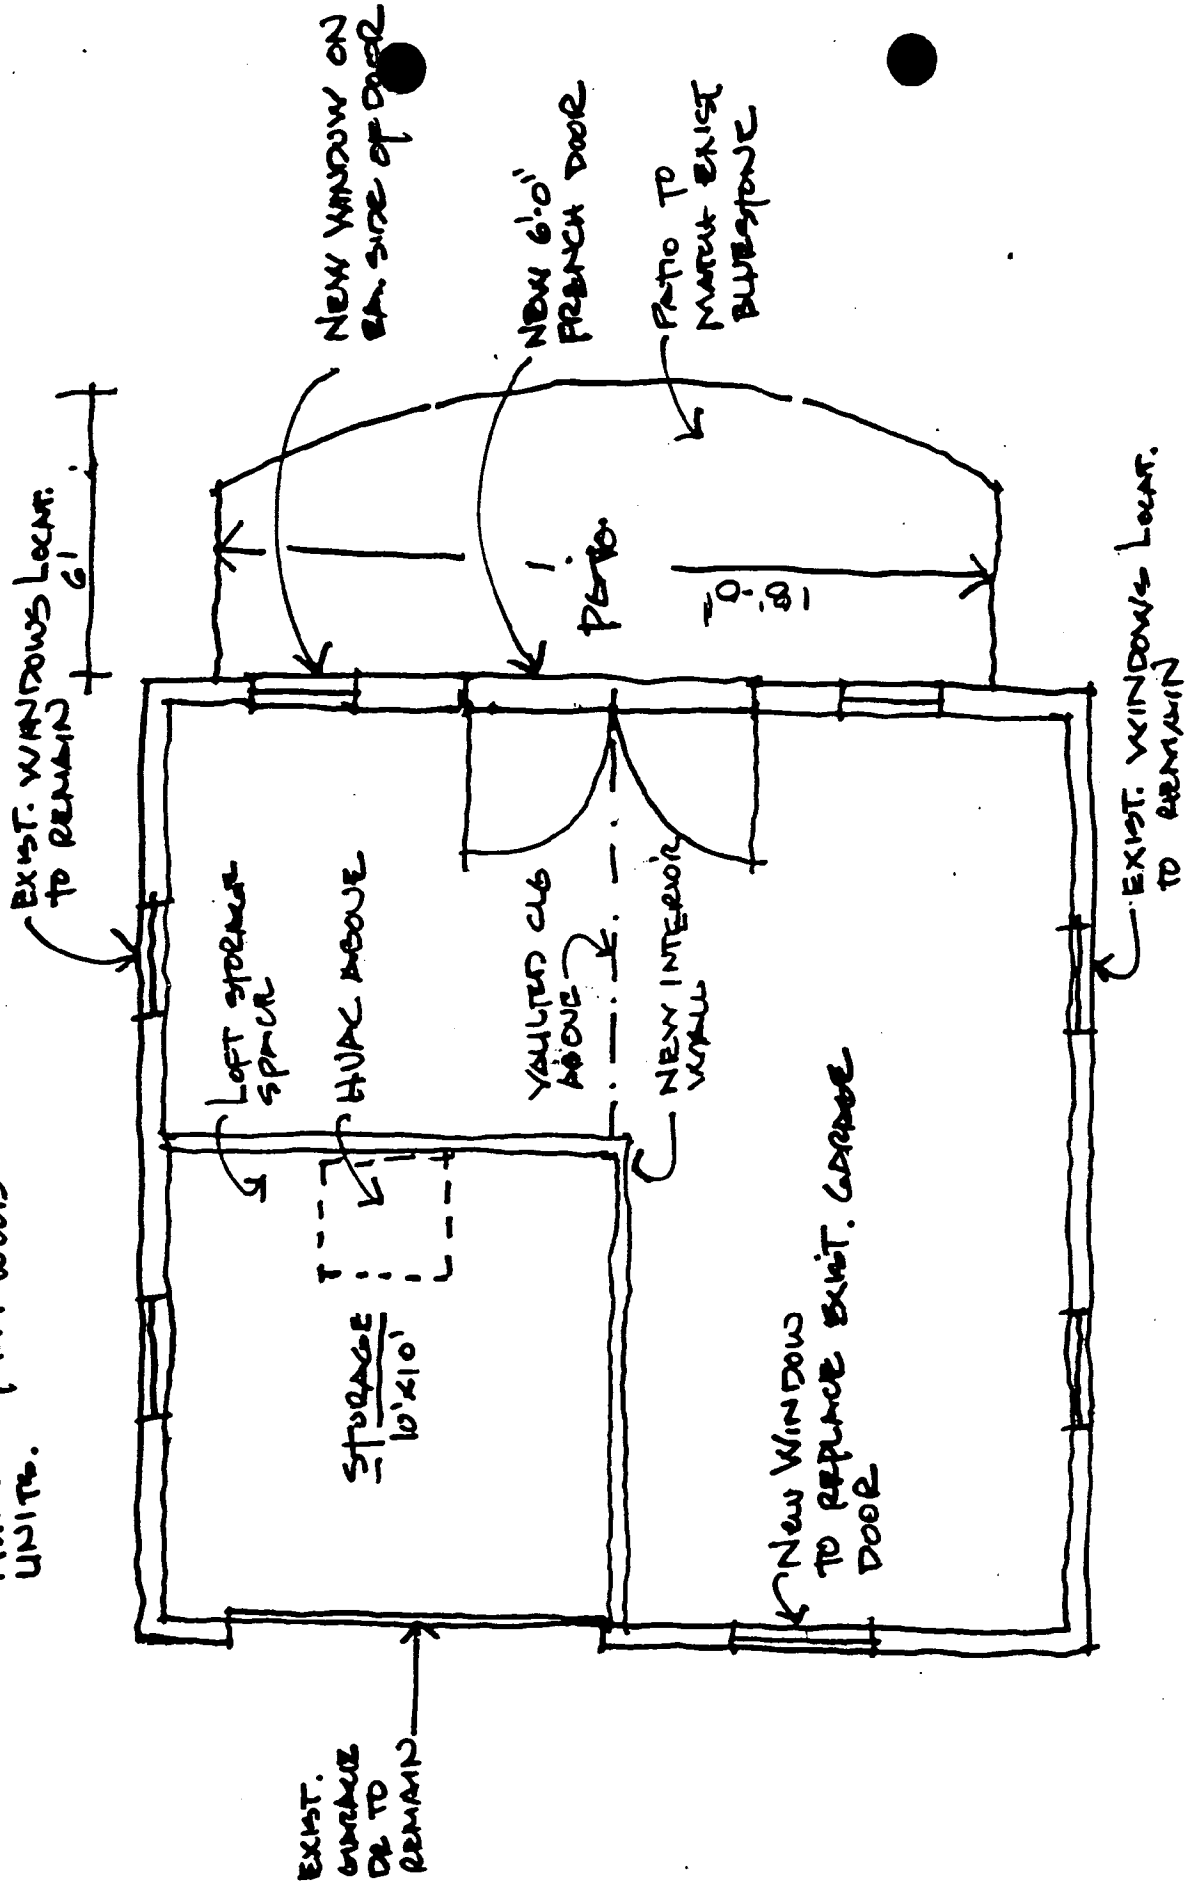 UNITS.
EXIST. WINDOWS LOCAT.
TO REMAIN
6'
NEW WINDOW ON
EA. SIDE OF DOOR
NEW 6'-0"
FRENCH DOOR
PATIO TO
MATCH EXIST
BLUESTONE
PATIO
18'-0"
LOFT STORAGE
SPACE
HVAC ABOVE
VAULTED CLG
ABOVE
NEW INTERIOR
WALL
STORAGE
10'X10'
NEW WINDOW
TO REPLACE EXIST. GARAGE
DOOR
EXIST.
GARAGE
DR TO
REMAIN
EXIST. WINDOWS LOCAT.
TO REMAIN